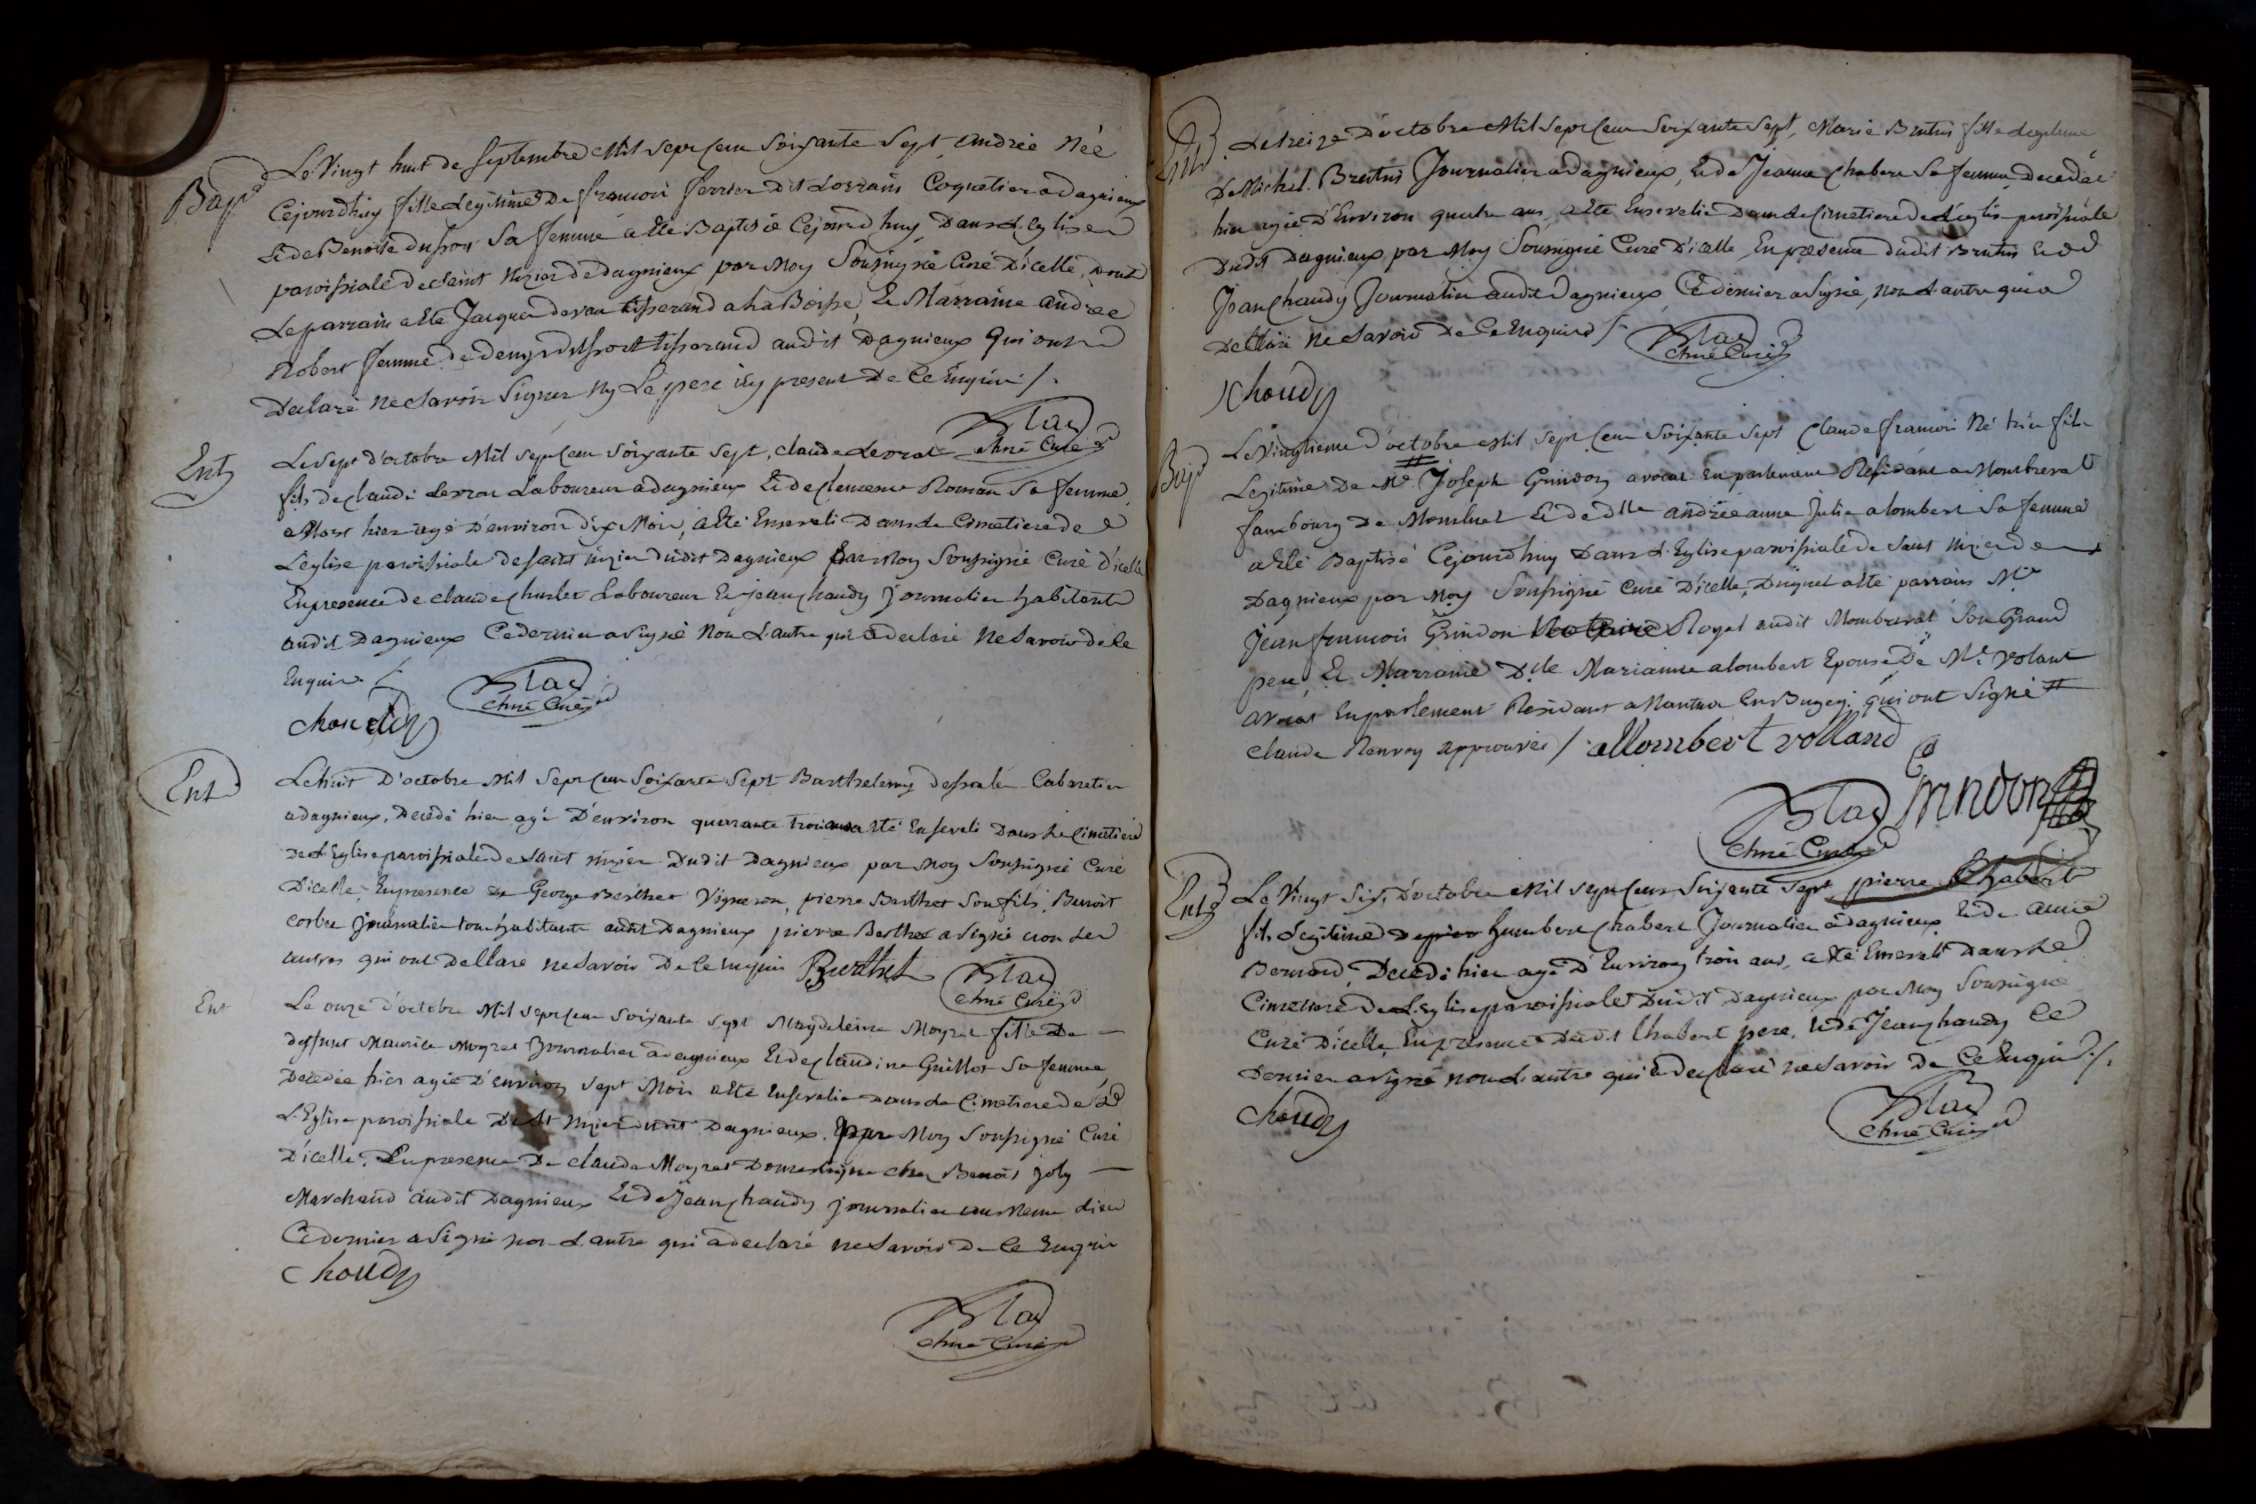 Bapt
Le Vingt huit de Septembre Mil Sept Cent Soixante Sept, andrée Née
Cejourdhuy fille Legitime De françois ferrier dit Lorrain Coquetier a dagnieux
Et de Benoite Sa femme a été Baptisée Cejourd'huy Dans L'Eglise
paroissiale de saint Mizier de dagnieux par Moy Soussigné Curé D'icelle, Dont
Le parrain a été Jacque tisserand a La Boisse, Et Marraine andrée
Robert femme de denys tisserand audit Dagnieux Qui ont
Declaré ne Savoir Signer Ny Le pere icy present De Ce Enquis /.
Curé
Ent
Le Sept d'octobre Mil Sept Cent Soixante Sept, claude Levrat
fils de claude Levrat Laboureur a dagnieux Et de clemence Roman Sa femme
Mort hier agé D'environ dix Mois, a été Enseveli Dans Le Cimetiere de
L'eglise paroissiale de saint mizier dudit Dagnieux par Moy Soussigné Curé d'icelle
En presence de claude Laboureur Et jean chaudy journalier habitants
audit Dagnieux Ce dernier a Signé Non L'autre qui a declaré Ne Savoir de Ce
Enquis /.
Curé
choudy
Ent
Le huit D'octobre Mil Sept Cent Soixante Sept Barthelemy Cabaretier
a dagnieux, Decedé hier agé D'environ quarante trois ans a été Enseveli Dans Le Cimetiere
De L'Eglise paroissiale De saint mizier Dudit Dagnieux par Moy Soussigné Curé
D'icelle, En presence De George Berthet Vigneron, pierre Berthet Son fils, Benoit
corbet journalier tous habitants audit Dagnieux pierre Berthet a Signé non Les
autres qui ont Declaré ne Savoir De Ce enquis Berthet
Curé
Ent
Le onze d'octobre Mil Sept Cent Soixante Sept Magdeleine Moyret fille De
deffunt Maurice Moyret Journalier a dagnieux Et de claudine Guillot Sa femme
Decedée hier agée D'environ Sept Mois a été Ensevelie Dans Le Cimetiere de
L'Eglise paroissiale De St Mizier dudit Dagnieux, par Moy Soussigné Curé
D'icelle, En presence De claude Moyret Domestique chez Benoit joly
Marchand audit Dagnieux Et de Jean chaudy journalier au Meme Lieu
Ce dernier a Signé non L'autre qui a declaré ne Savoir De Ce Enquis
choudy
Curé
Ent
Le treize D'octobre Mil Sept Cent Soixante Sept, Marie Brutus fille Legitime
De Michel Brutus Journalier a Dagnieux, Et de Jeanne chabert Sa femme, Decedée
hier agée D'Environ quatre ans, a été Ensevelie Dans Le Cimetiere de L'eglise paroissiale
Dudit Dagnieux par Moy Soussigné Curé D'icelle En presence dudit Brutus Et de
Jean chaudy Journalier audit Dagnieux, Ce dernier a Signé, Non L'autre qui a
Declaré Ne Savoir De Ce Enquis /.
Curé
choudy
Bapt
Le Vingtieme d'octobre Mil Sept Cent Soixante Sept Claude françois Né hier fils
Legitime De Me Joseph Grindon avocat En parlement Residant a Montreval
fauxbourg De Montluel Et de dlle andrée anne Julie alombert Sa femme
a Eté Baptisé Cejourd'huy Dans L'Eglise paroissiale de Saint Mizier de
Dagnieux par Moy Soussigné Curé D'icelle, Duquel a été parrain Mr
Jean francois Grindon Notaire Royal audit Montreval Son Grand
pere, Et Marraine Dlle Marianne alombert Epouse De Mr Volant
avocat En parlement Residant a Nantua En Bugey, qui ont Signé #
Claude Renvoy approuvés / allombert volland
Grindon
Curé
Ent
Le Vingt Six D'octobre Mil Sept Cent Soixante Sept pierre Chabert
fils Legitime De Humbert chabert Journalier a dagnieux Et de anne
Bernard, Decedé hier agé D'Environ trois ans, a été Enseveli Dans Le
Cimetiere De L'Eglise paroissiale Dudit Dagnieux par Moy Soussigné
Curé D'icelle, En presence Dudit Chabert pere, Et de Jean chaudy Ce
Dernier a signé non L'autre qui a declaré ne Savoir De Ce Enquis /.
Curé
choudy